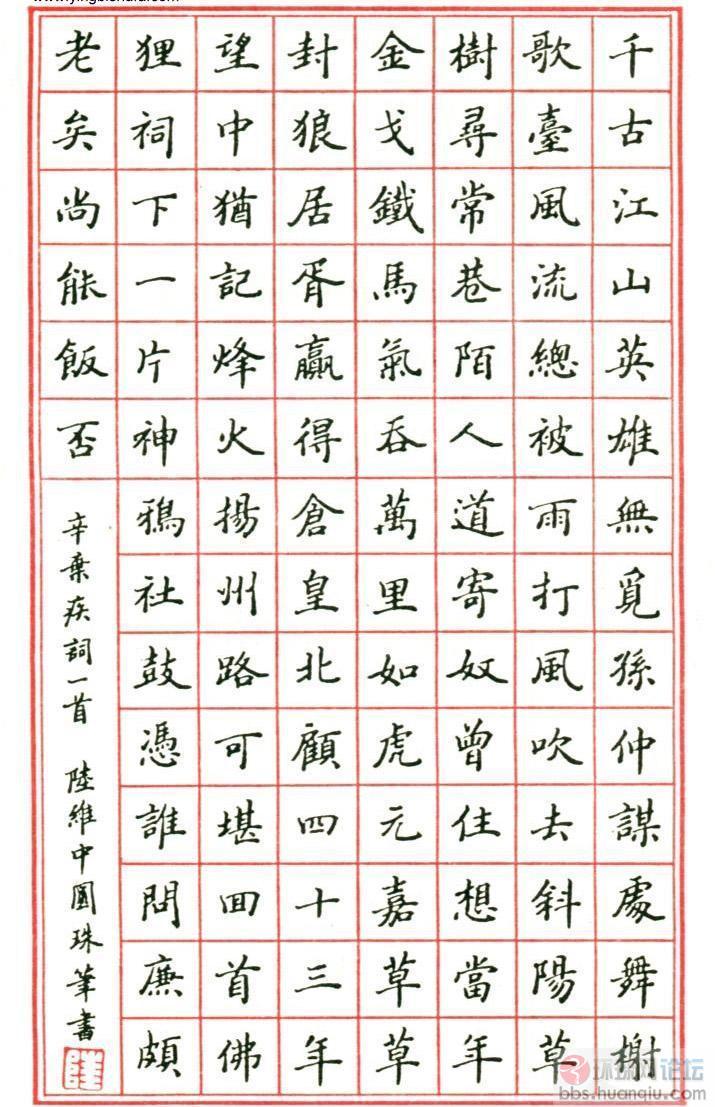 千古江山英雄無覓孫仲謀處舞榭
歌臺風流總被雨打風吹去斜陽草
樹尋常巷陌人道寄奴曾住想當年
金戈鐵馬氣吞萬里如虎元嘉草草
封狼居胥贏得倉皇北顧四十三年
望中猶記烽火揚州路可堪回首佛
狸祠下一片神鴉社鼓憑誰問廉頗
老矣尚能飯否
辛棄疾詞一首 陸維中圓珠筆書
环球网论坛
bbs.huanqiu.com